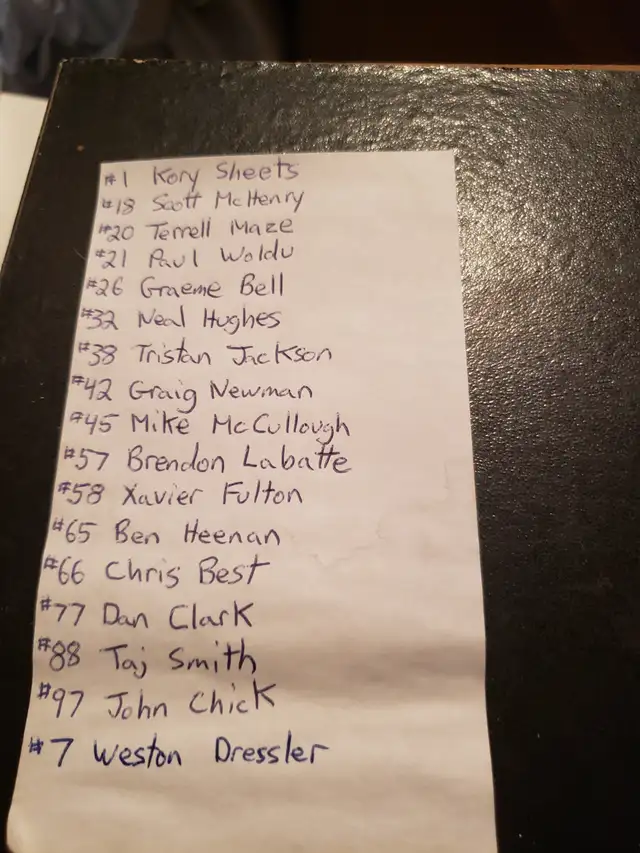 #1 Kory Sheets
#18 Scott McHenry
#20 Terrell Maze
#21 Paul Woldu
#26 Graeme Bell
#32 Neal Hughes
#38 Tristan Jackson
#42 Graig Newman
#45 Mike McCullough
#57 Brendon Labatte
#58 Xavier Fulton
#65 Ben Heenan
#66 Chris Best
#77 Dan Clark
#88 Taj Smith
#97 John Chick
#7 Weston Dressler